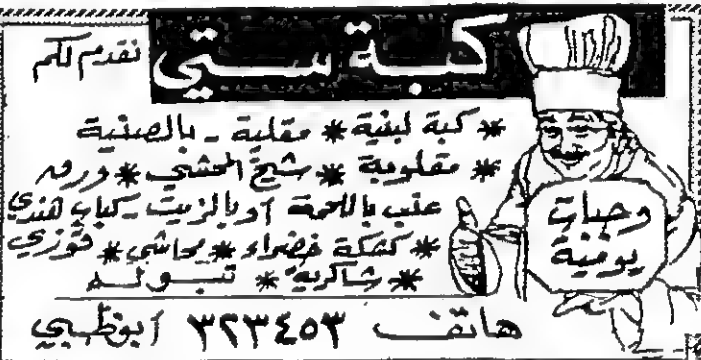 كبة ستي
نقدم لكم
* كبة لبنية * مقلية - بالصينية
* مقلوبة * شيخ المحشي * ورق
عنب باللحمة أو بالزيت - كباب هندي
* كشكة خضراء * محاشي * قوزي
* شاكرية * تبوله
وجبات
يومية
هاتف ٣٢٣٤٥٣ أبوظبي